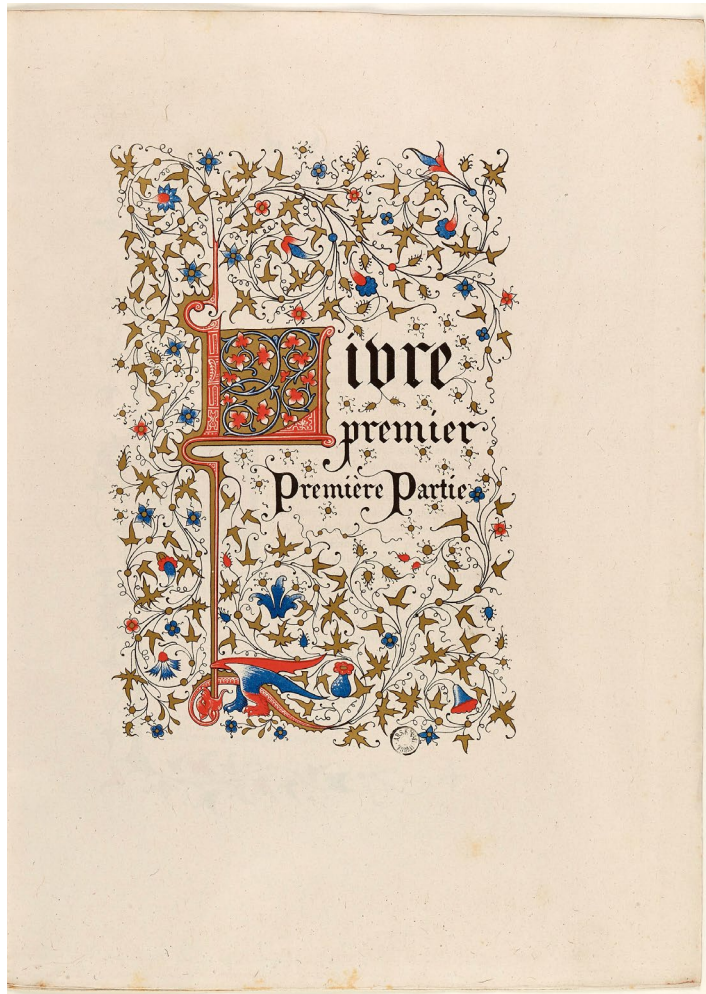 Livre
premier
Première Partie